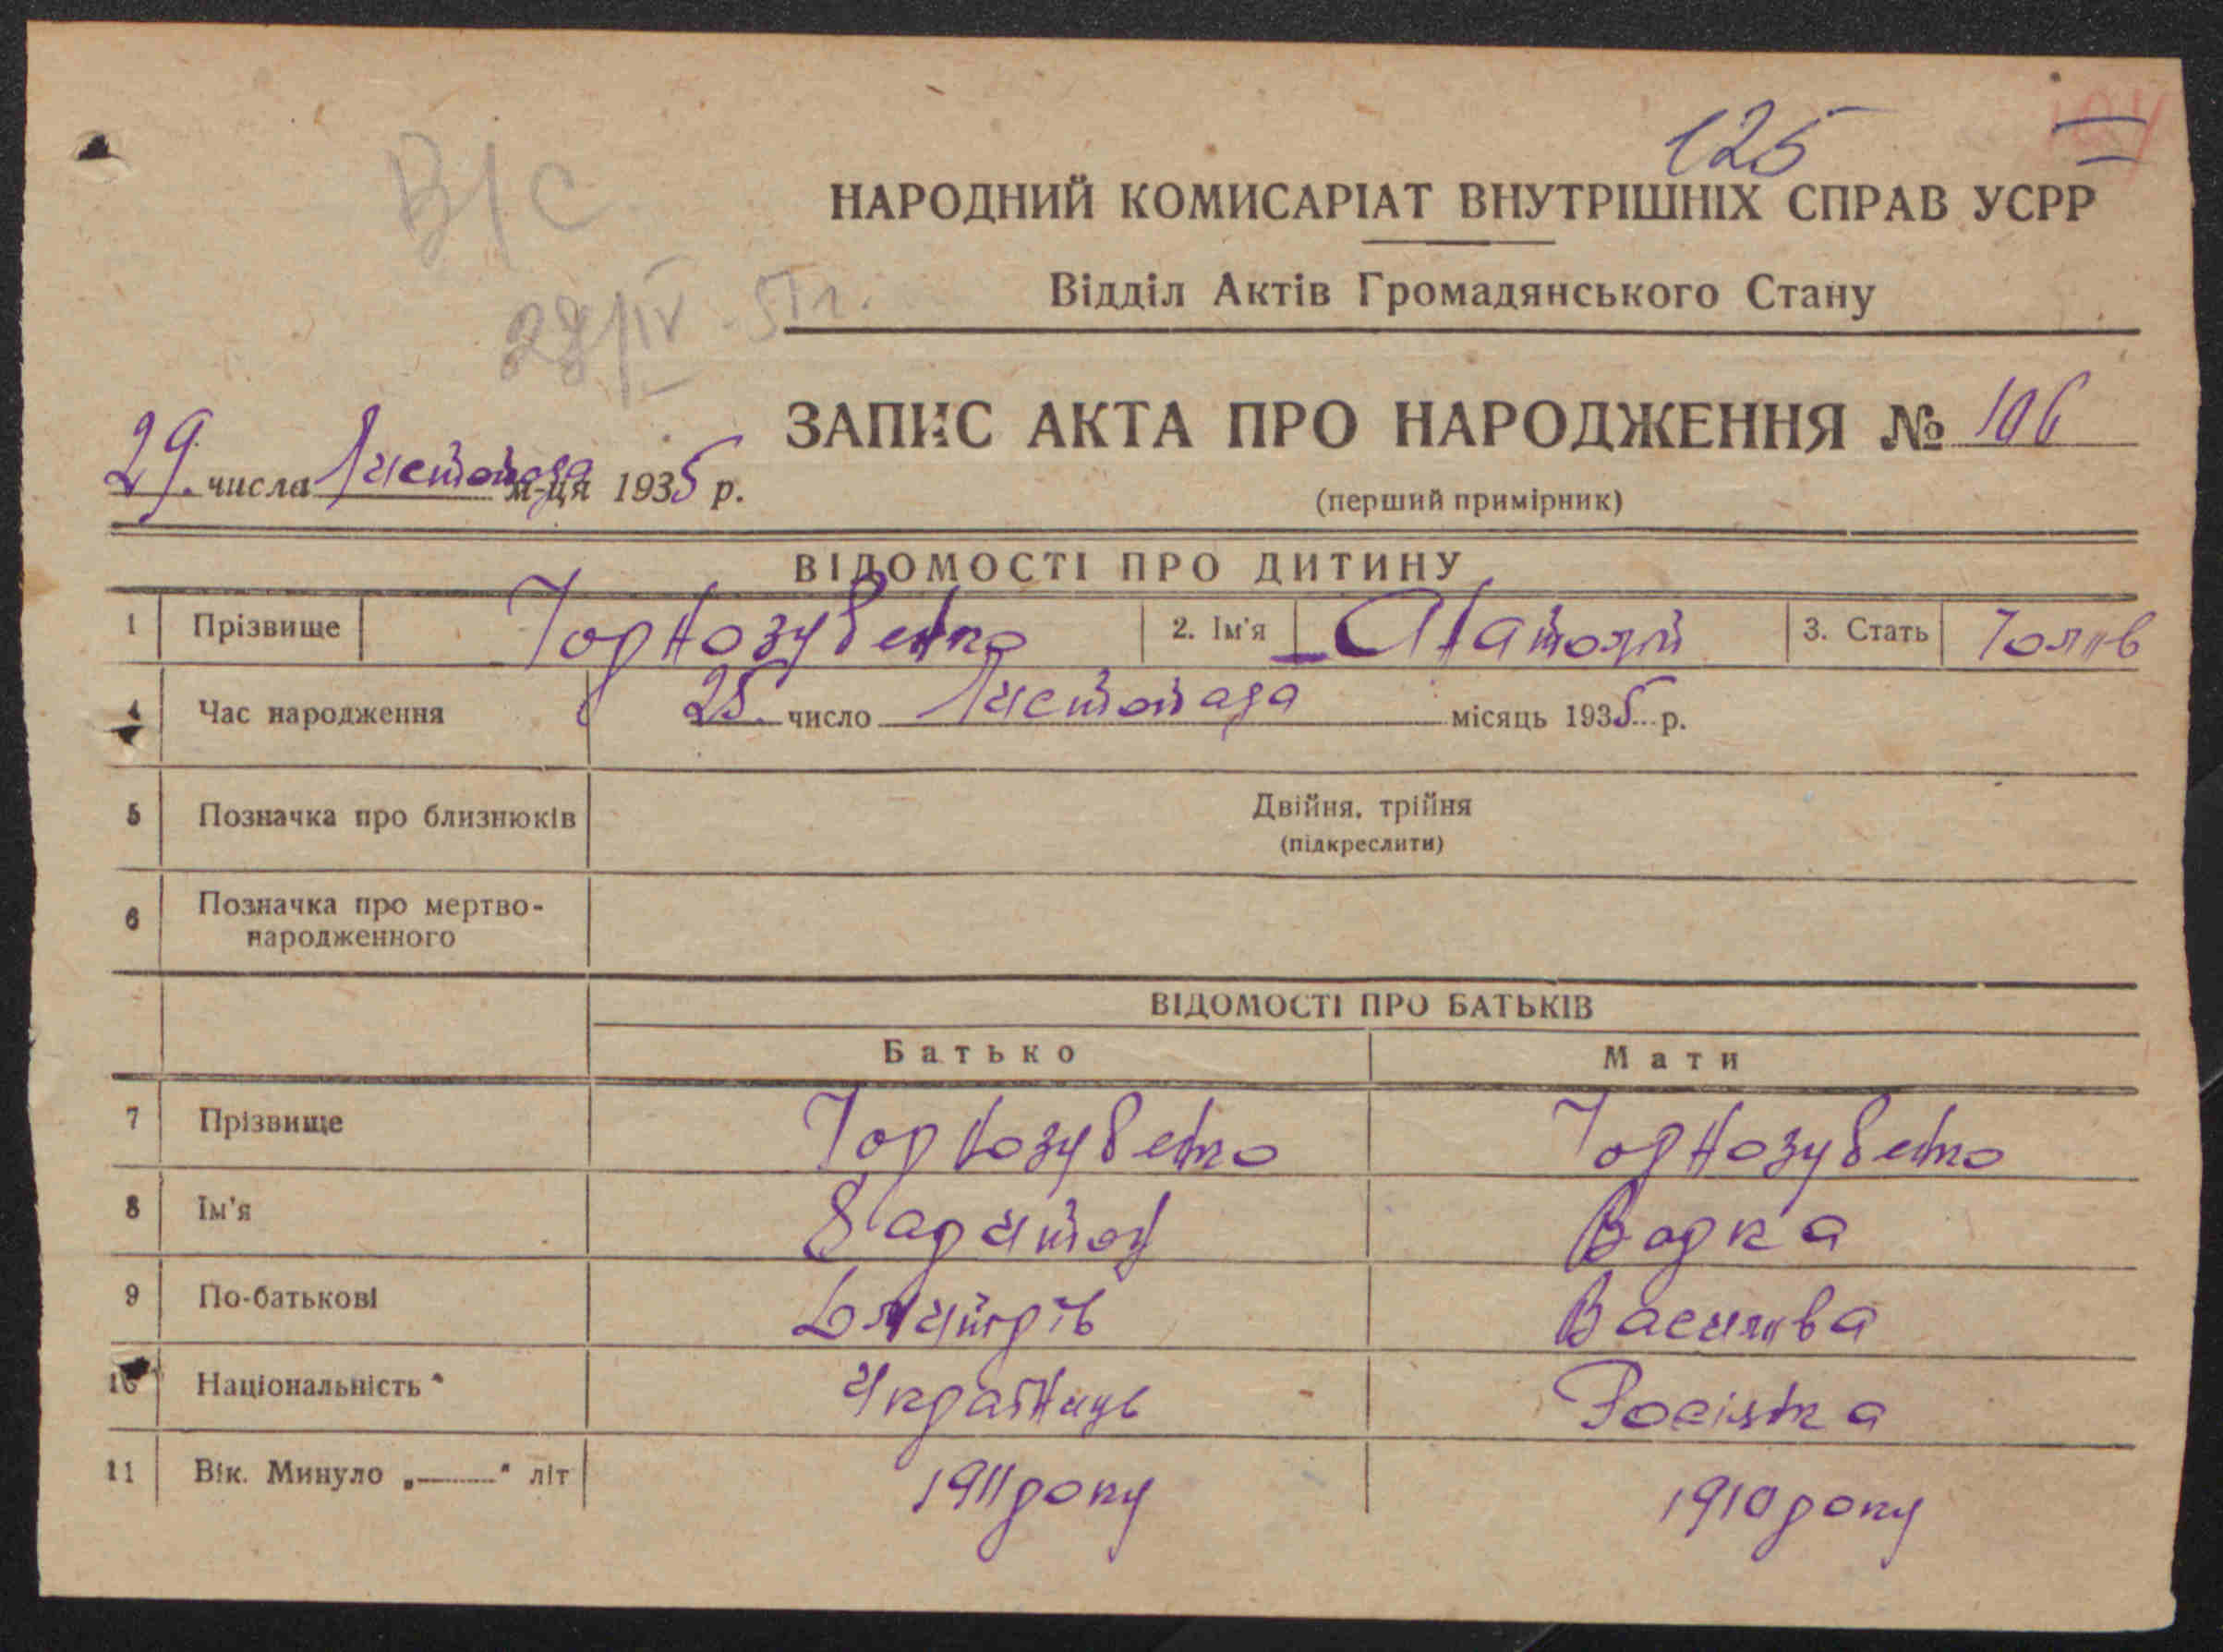 125
В/С
НАРОДНИЙ КОМИСАРІАТ ВНУТРІШНІХ СПРАВ УСРР
Відділ Актів Громадянського Стану
ЗАПИС АКТА ПРО НАРОДЖЕННЯ № 106
29. числа Листопада м-ця 1935 р.
(перший примірник)
ВІДОМОСТІ ПРО ДИТИНУ
1 Прізвище Чорнозубенко 2. Ім'я Анатолій 3. Стать Чолів
4 Час народження 25. число Листопада місяць 1935 р.
5 Позначка про близнюків Двійня, трійня
(підкреслити)
6 Позначка про мертво-
народженного
ВІДОМОСТІ ПРО БАТЬКІВ
Батько Мати
7 Прізвище Чорнозубенко Чорнозубенко
8 Ім'я Харитон
9 По-батькові Дмитрів Василівa
10 Національність Українець Росіянка
11 Вік. Минуло „ “ літ 1911 року 1910 року